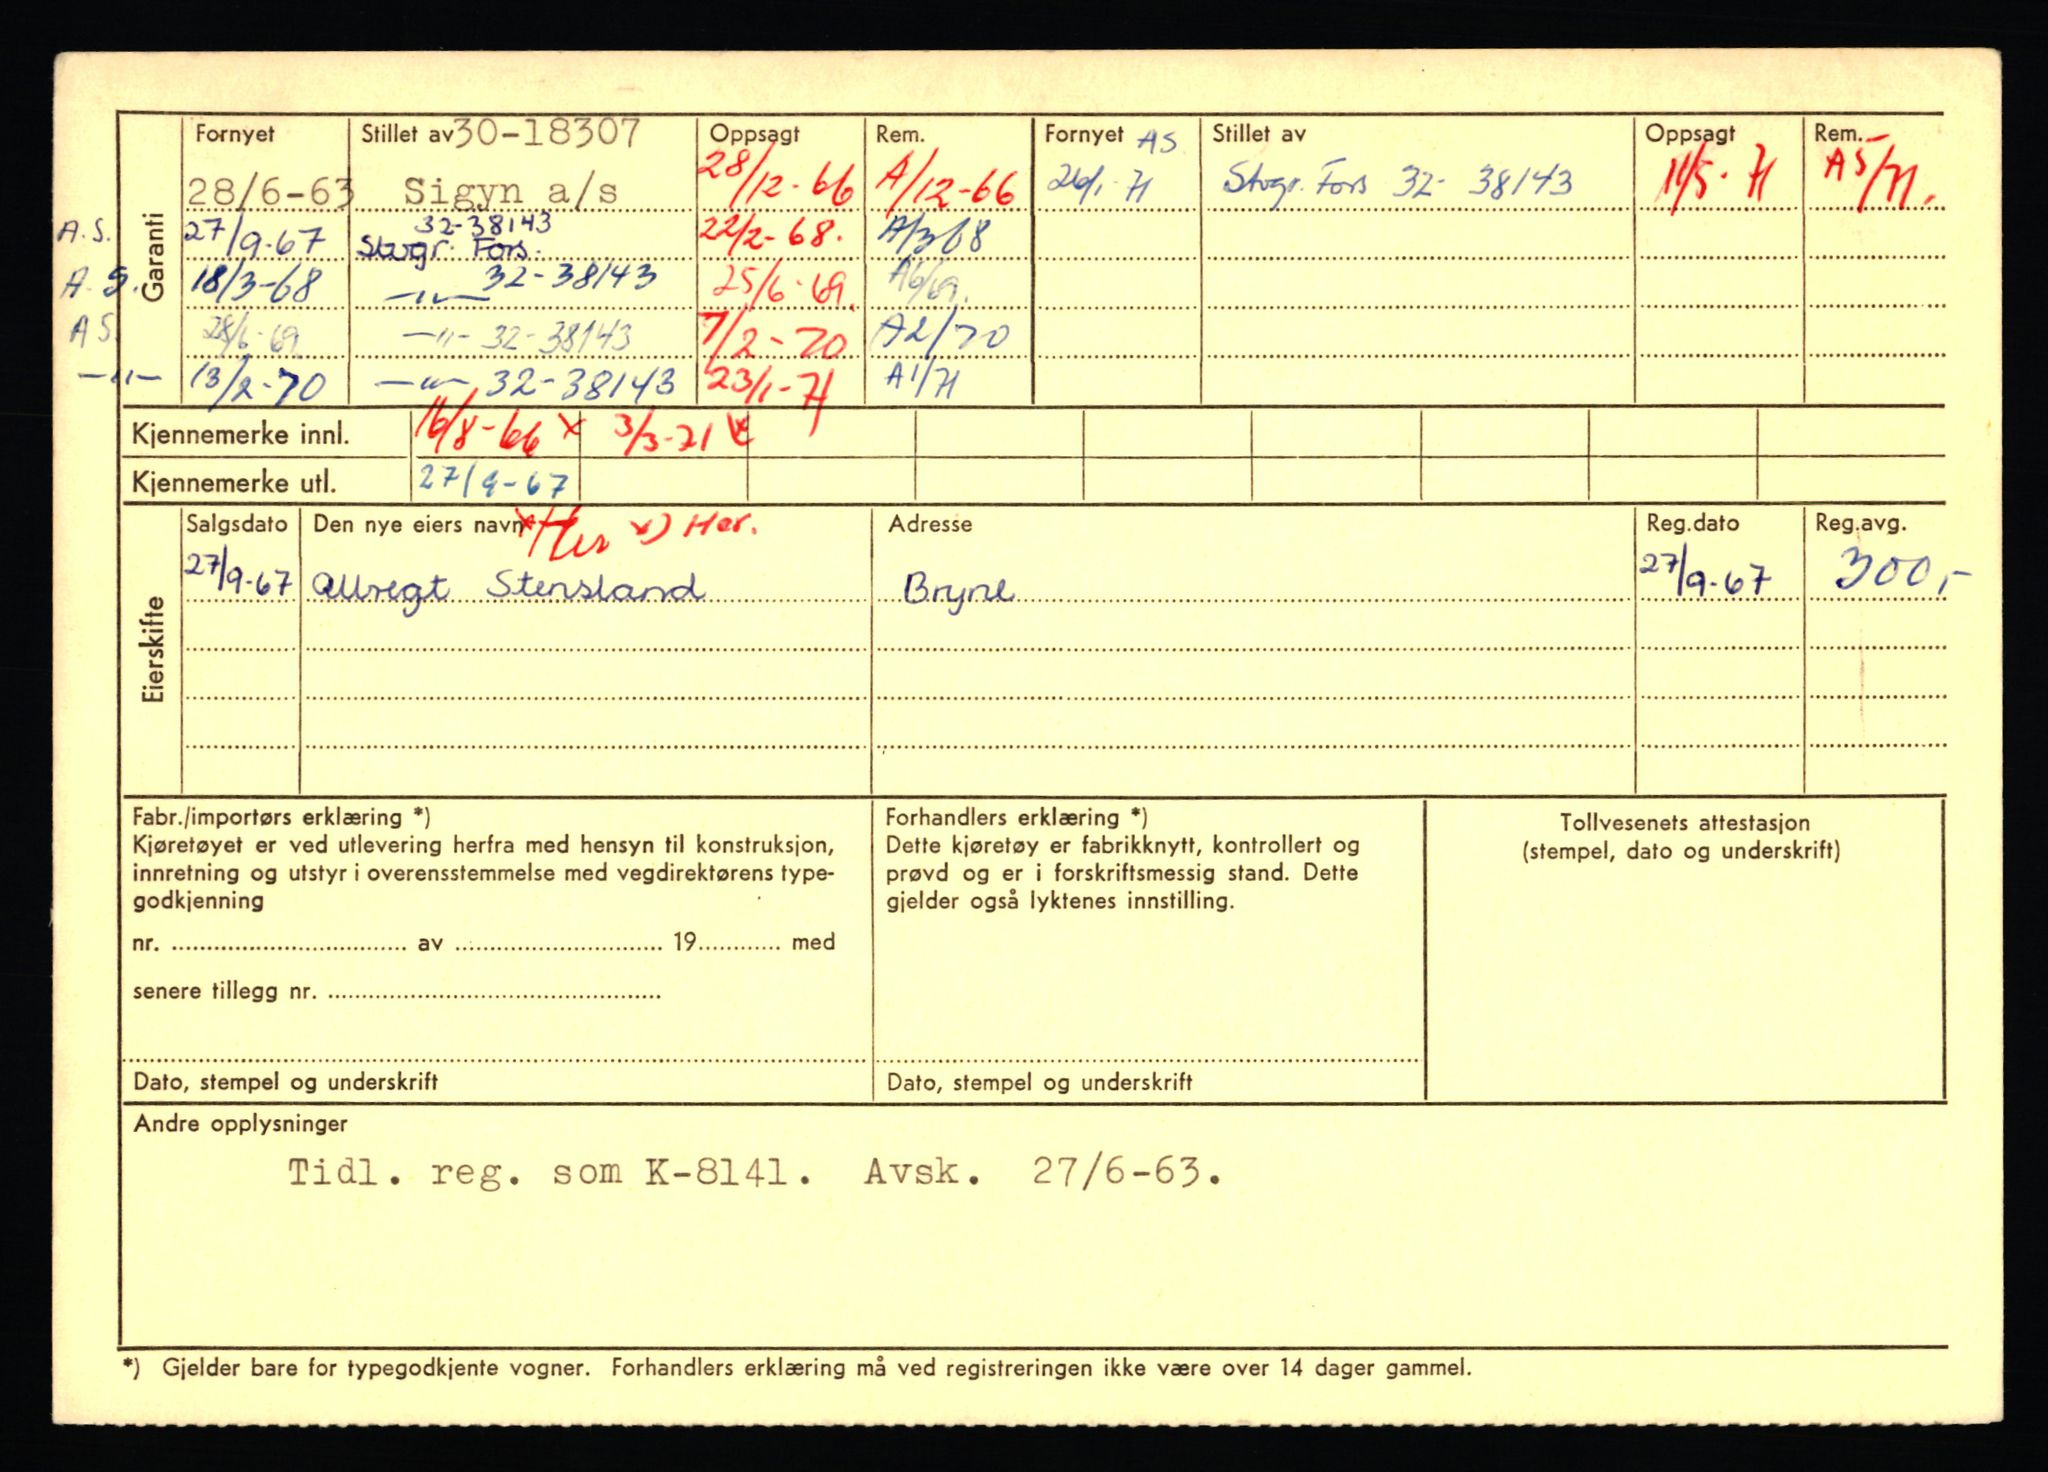 Garanti
Fornyet Stillet av 30-18307 Oppsagt Rem. Fornyet AS Stillet av Oppsagt Rem.
28/6-63 Sigyn a/s 28/12-66 A/12-66 26/1-71 Stvgr. Fors 32-38143 11/5-71 A5/71.
A.S. 27/9-67 32-38143 Stvgr. Fors. 22/2-68. A/3 68
A.S. 18/3-68 —"— 32-38143 25/6-69. A6/69.
AS. 28/6-69 —"— 32-38143 7/2-70 A2/70
—"— 13/2-70 —"— 32-38143 23/1-71 A1/71
Kjennemerke innl. 16/8-66 x 3/3-71 x
Kjennemerke utl. 27/9-67
Eierskifte
Salgsdato Den nye eiers navn x Her x) Her. Adresse Reg.dato Reg.avg.
27/9-67 Ollregt Stensland Bryne 27/9-67 300,-
Fabr./importørs erklæring *)
Kjøretøyet er ved utlevering herfra med hensyn til konstruksjon,
innretning og utstyr i overensstemmelse med vegdirektørens type-
godkjenning
nr. .............................. av .......................... 19........... med
senere tillegg nr. ..........................................
Dato, stempel og underskrift
Forhandlers erklæring *)
Dette kjøretøy er fabrikknytt, kontrollert og
prøvd og er i forskriftsmessig stand. Dette
gjelder også lyktenes innstilling.
Dato, stempel og underskrift
Tollvesenets attestasjon
(stempel, dato og underskrift)
Andre opplysninger
Tidl. reg. som K-8141. Avsk. 27/6-63.
*) Gjelder bare for typegodkjente vogner. Forhandlers erklæring må ved registreringen ikke være over 14 dager gammel.